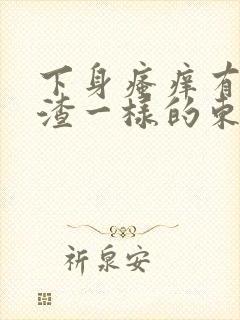 下身瘙痒有
渣一样的东
祈泉安